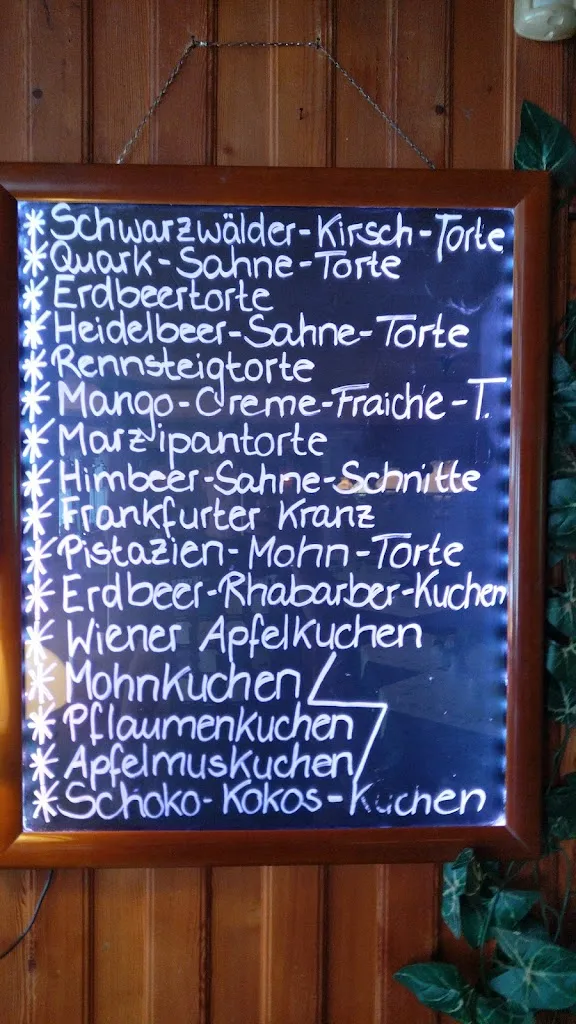 * Schwarzwälder-Kirsch-Torte
* Quark-Sahne-Torte
* Erdbeertorte
* Heidelbeer-Sahne-Torte
* Rennsteigtorte
* Mango-Creme-Fraiche-T.
* Marzipantorte
* Himbeer-Sahne-Schnitte
* Frankfurter Kranz
* Pistazien-Mohn-Torte
* Erdbeer-Rhabarber-Kuchen
* Wiener Apfelkuchen
* Mohnkuchen
* Pflaumenkuchen
* Apfelmuskuchen
* Schoko-Kokos-Kuchen